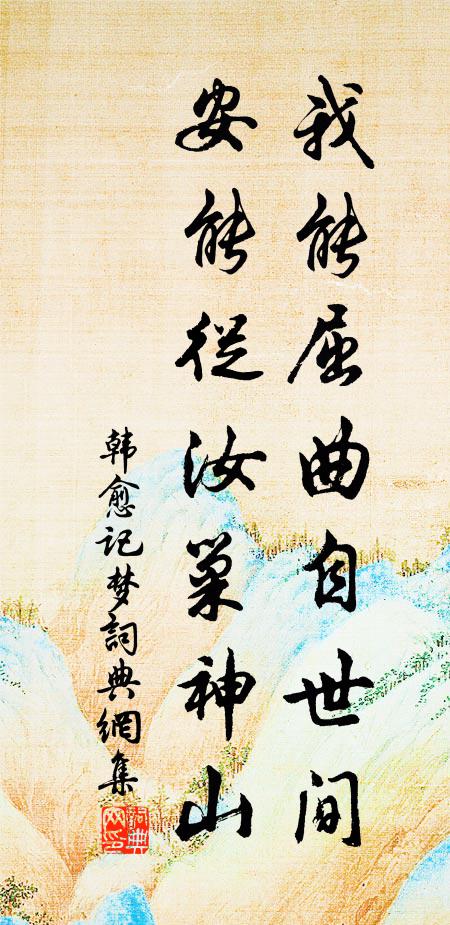 我能屈曲自世间
安能從汝巢神山
韩愈记梦詞典網集
詞典
网印